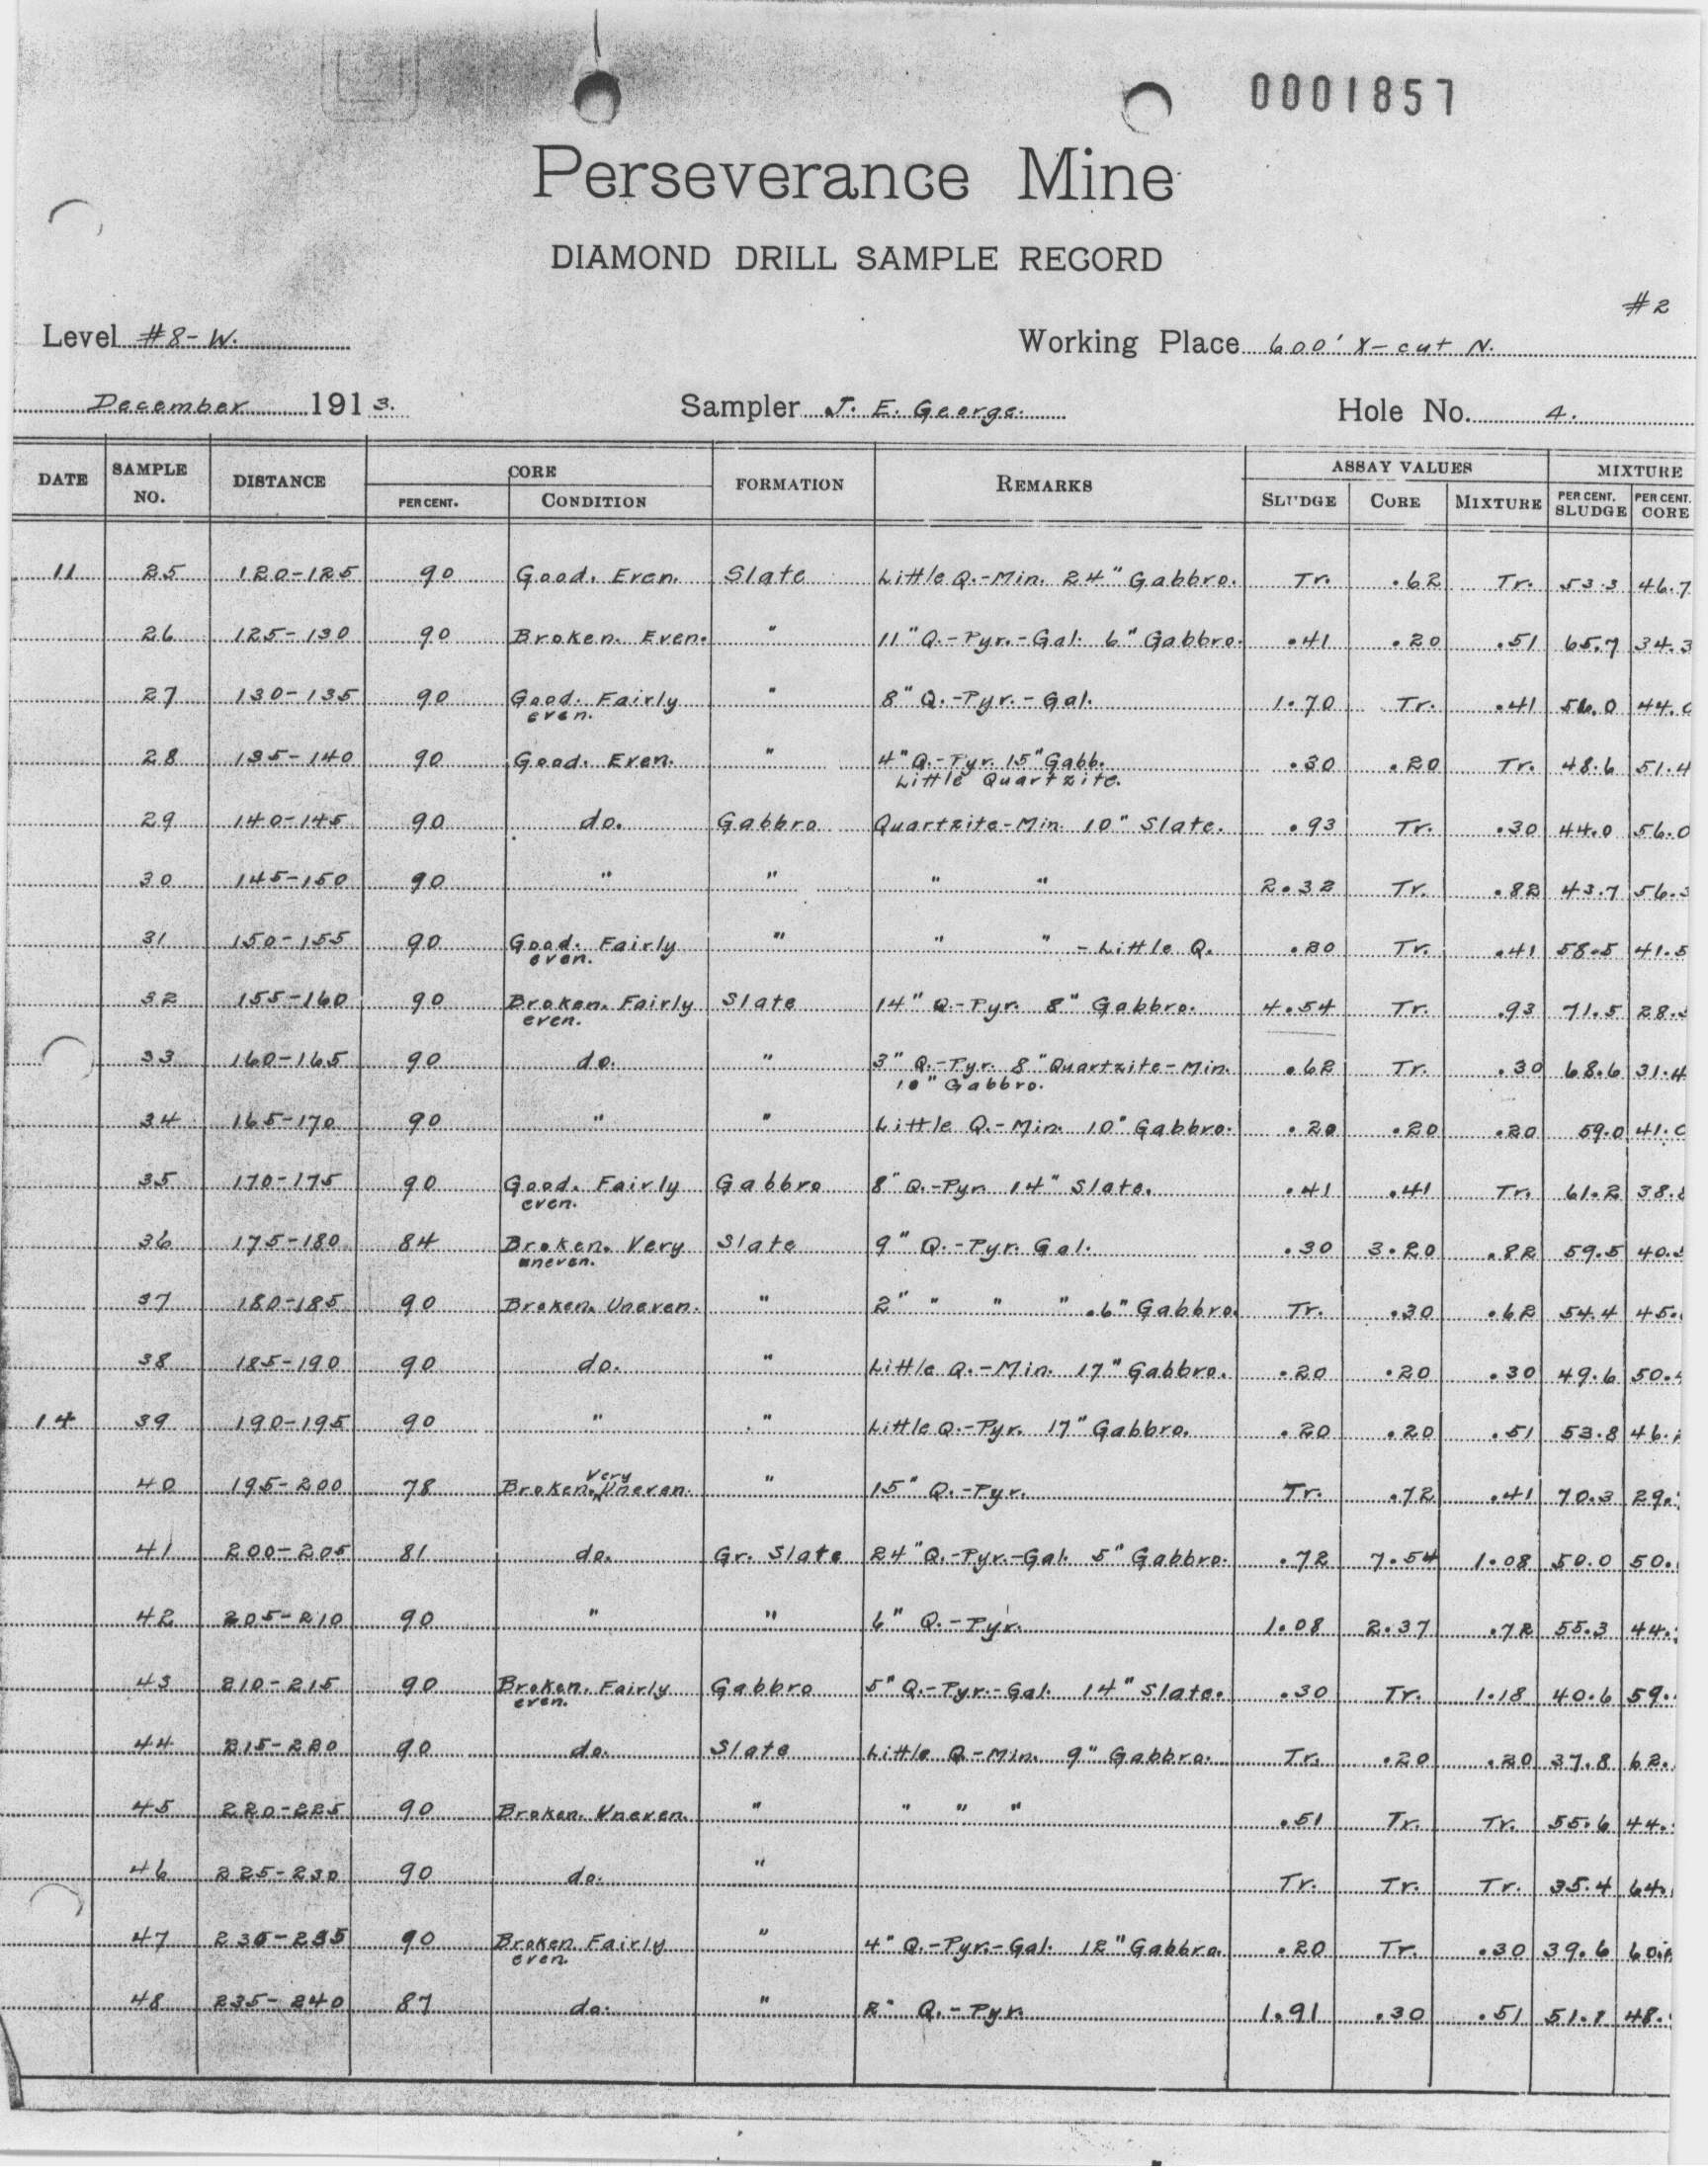 0001857
Perseverance Mine
DIAMOND DRILL SAMPLE RECORD
#2
Level #8-W. Working Place 600' X-cut N.
December 1913. Sampler J. E. George. Hole No. 4.
DATE SAMPLE NO. DISTANCE CORE FORMATION REMARKS ASSAY VALUES MIXTURE
PER CENT. CONDITION SLUDGE CORE MIXTURE PER CENT. SLUDGE PER CENT. CORE
11 25 120-125 90 Good. Even. Slate Little Q.-Min. 24" Gabbro. Tr. .62 Tr. 53.3 46.7
26 125-130 90 Broken. Even. " 11" Q.-Pyr.-Gal. 6" Gabbro. .41 .20 .51 65.7 34.3
27 130-135 90 Good. Fairly even. " 8" Q.-Pyr.-Gal. 1.70 Tr. .41 56.0 44.0
28 135-140 90 Good. Even. " 4" Q.-Pyr. 15" Gabb. Little Quartzite. .30 .20 Tr. 48.6 51.4
29 140-145 90 do. Gabbro Quartzite-Min 10" Slate. .93 Tr. .30 44.0 56.0
30 145-150 90 " " " " 2.32 Tr. .82 43.7 56.3
31 150-155 90 Good. Fairly even. " " " - Little Q. .20 Tr. .41 58.5 41.5
32 155-160 90 Broken. Fairly even. Slate 14" Q.-Pyr. 8" Gabbro. 4.54 Tr. .93 71.5 28.5
33 160-165 90 do. " 3" Q.-Pyr. 8" Quartzite-Min. 10" Gabbro. .62 Tr. .30 68.6 31.4
34 165-170 90 " " Little Q.-Min. 10" Gabbro. .20 .20 .20 59.0 41.0
35 170-175 90 Good. Fairly even. Gabbro 8" Q.-Pyr. 14" Slate. .41 .41 Tr. 61.2 38.8
36 175-180 84 Broken. Very uneven. Slate 9" Q.-Pyr. Gal. .30 3.20 .82 59.5 40.5
37 180-185 90 Broken. Uneven. " 2" " " " .6" Gabbro. Tr. .30 .62 54.4 45.
38 185-190 90 do. " Little Q.-Min. 17" Gabbro. .20 .20 .30 49.6 50.4
14 39 190-195 90 " " Little Q.-Pyr. 17" Gabbro. .20 .20 .51 53.8 46.
40 195-200 78 Broken. Very Uneven. " 15" Q.-Pyr. Tr. .72 .41 70.3 29.
41 200-205 81 do. Gr. Slate 24" Q.-Pyr.-Gal. 5" Gabbro. .72 7.54 1.08 50.0 50.
42 205-210 90 " " 6" Q.-Pyr. 1.08 2.37 .72 55.3 44.
43 210-215 90 Broken. Fairly even. Gabbro 5" Q.-Pyr.-Gal. 14" Slate. .30 Tr. 1.18 40.6 59.
44 215-220 90 do. Slate Little Q-Min. 9" Gabbro. Tr. .20 .20 37.8 62.
45 220-225 90 Broken. Uneven. " " " " .51 Tr. Tr. 55.6 44.
46 225-230 90 do. " Tr. Tr. Tr. 35.4 64.
47 230-235 90 Broken Fairly even. " 4" Q.-Pyr.-Gal. 12" Gabbro. .20 Tr. .30 39.6 60.
48 235-240 87 do. " 2" Q.-Pyr. 1.91 .30 .51 51.1 48.